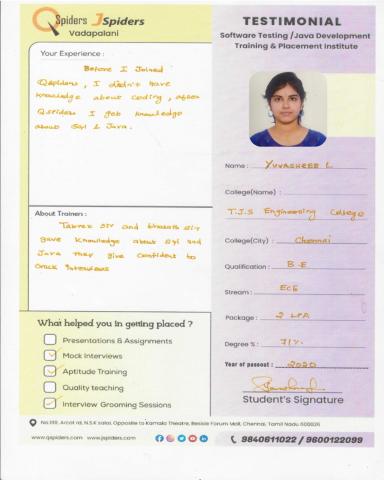 QSpiders JSpiders
Vadapalani
TESTIMONIAL
Software Testing /Java Development
Training & Placement Institute
Your Experience :
Before I Joined
Qspiders, I didn't have
knowledge about coding, after
Qspiders I got knowledge
about Sql & Java.
Name : YUVASHREE L
College(Name) :
T.J.S Engineering College
College(City) : Chennai
Qualification : B.E
Stream : ECE
Package : 2 LPA
Degree % : 71%
Year of passout : 2020
Student's Signature
About Trainers :
Tabrez sir and bharath sir
gave knowledge about Sql and
Java they give confident to
crack interviews
What helped you in getting placed ?
Presentations & Assignments
Mock Interviews
Aptitude Training
Quality teaching
Interview Grooming Sessions
Arcot rd, N.S.K salai, Opposite to Kamala Theatre, Beside Forum Mall, Chennai, Tamil Nadu 600026
www.qspiders.com www.jspiders.com
9840611022 / 9600122099